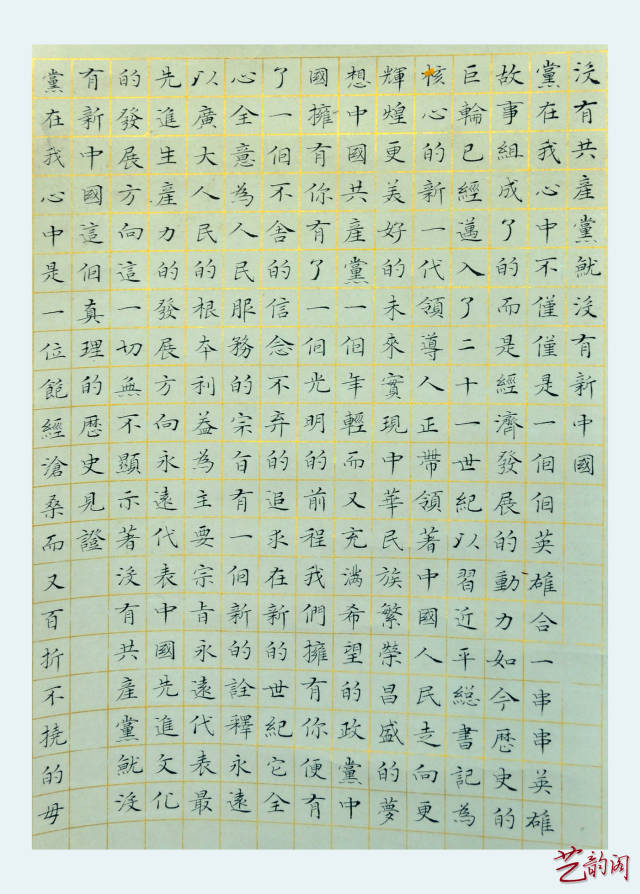 没有共產黨就没有新中國
黨在我心中不僅僅是一個個英雄合一串串英雄
故事組成了的而是經濟發展的動力如今歷史的
巨輪已經邁入了二十一世紀以習近平總書記為
核心的新一代領導人正帶領著中國人民走向更
輝煌更美好的未來實現中華民族繁榮昌盛的夢
想中國共產黨一個年輕而又充滿希望的政黨中
國擁有你有了一個光明的前程我們擁有你便有
了一個不舍的信念不弃的追求在新的世紀它全
心全意為人民服務的宗旨有一個新的詮釋永遠
以廣大人民的根本利益為主要宗旨永遠代表最
先進生產力的發展方向永遠代表中國先進文化
的發展方向這一切無不顯示著没有共產黨就没
有新中國這個真理的歷史見證
黨在我心中是一位飽經滄桑而又百折不撓的母
艺韵阁